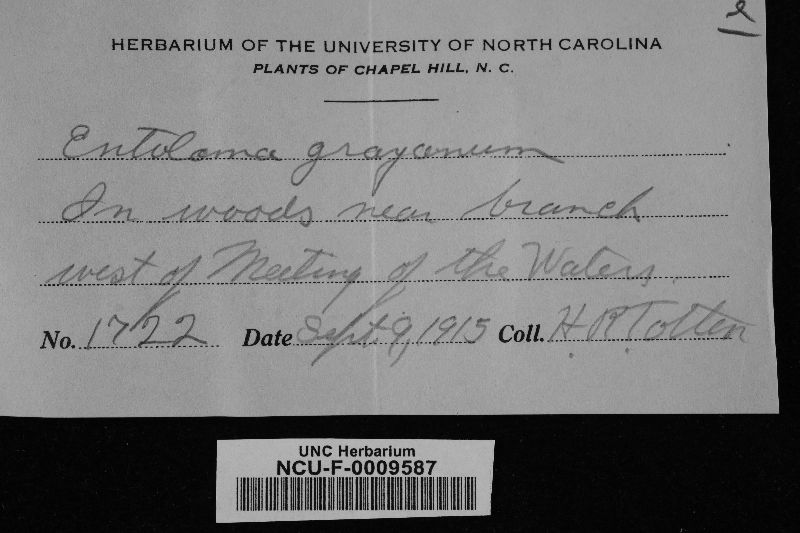 HERBARIUM OF THE UNIVERSITY OF NORTH CAROLINA
PLANTS OF CHAPEL HILL, N. C.
Entoloma grayanum
In woods near branch
west of Meeting of the Waters.
No. 1722 Date Sept. 9, 1915 Coll. H. R. Totten
UNC Herbarium
NCU-F-0009587